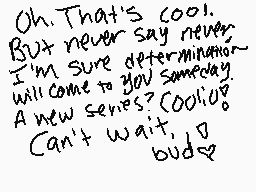 Oh. That's cool.
But never say never,
I'm sure determination
will come to you someday.
A new series? Coolio!
Can't wait,
bud